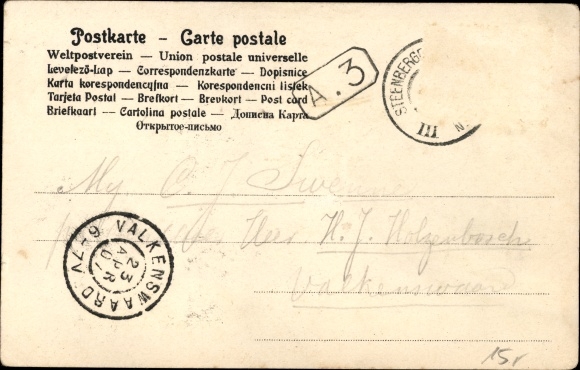 Postkarte – Carte postale
Weltpostverein – Union postale universelle
Levelező-Lap – Correspondenzkarte – Dopisnice
Karta korespondencyjna – Korespondencni listek
Tarjeta Postal – Brefkort – Brevkort – Post card
Briefkaart – Cartolina postale – Дописна Карта
Открытое-письмо
A.3
STEENBERGE
III
N.
Mej. C. J.
den Heer H. J. Holzenbosch
Valkenswaard
VALKENSWAARD
6-7V
23
APR
15,